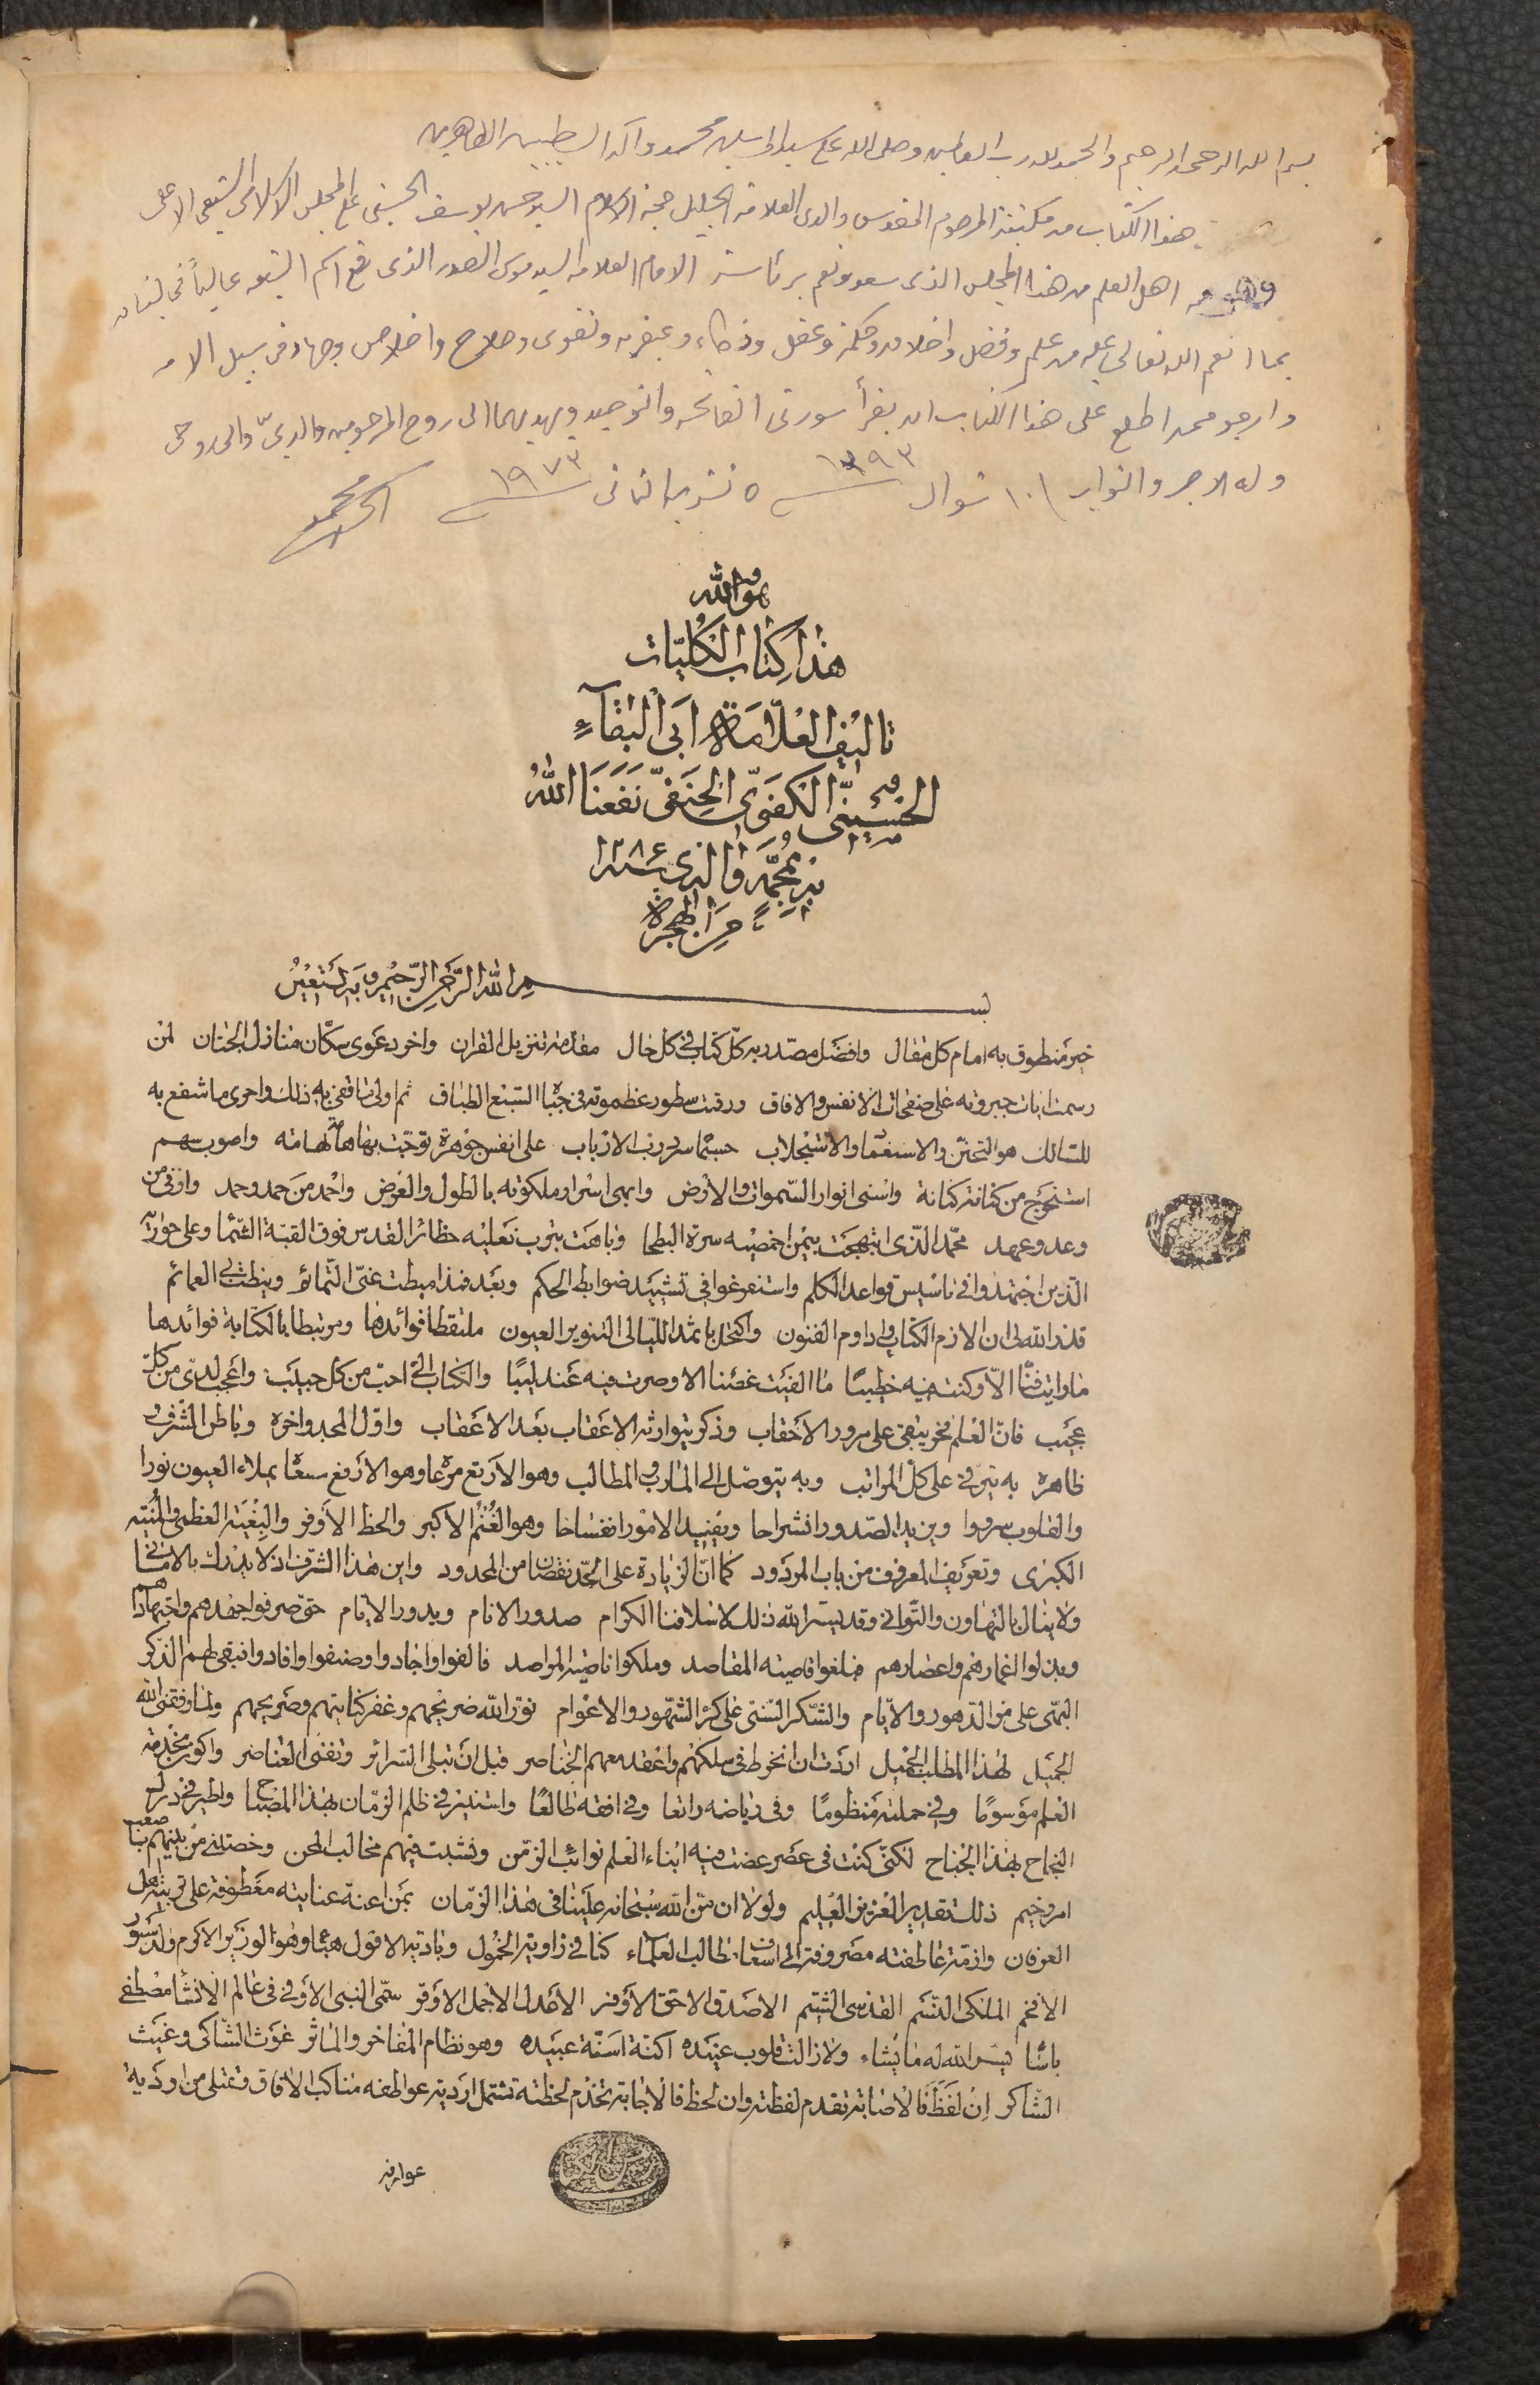 بسم الله الرحمن الرحيم والحمد لله رب العالمين وصلى الله على سيد المرسلين محمد وآله الطيبين الطاهرين
هذا الكتاب من مكتبة المرحوم المقدس والدي العلامة الجليل حجة الاسلام السيد حسن يوسف الحسيني على المجلس الاسلامي الشيعي الاعلى
اهل العلم من هذا المجلس الذي سعد ونعم برئاسة الامام العلامة السيد موسى الصدر الذي رفع اسم الشيعة عالياً في لبنان
بما انعم الله تعالى عليه من علم وفضل واخلاق وحكمة وعقل وذكاء وعبقرية وتقوى وصلاح واخلاص وجهاد في سبيل الامة
وارجو ممن اطلع على هذا الكتاب ان يقرأ سورتي الفاتحة والتوحيد ويهديهما الى روح المرحومين والديّ والى روحي
وله الاجر والثواب ١٠ شوال ١٣٩٣ ٥ تشرين الثاني ١٩٧٣
هو الله
هذا كتاب الكليات
تاليف العلامة ابى البقآء
الحسينى الكفوى الحنفى نفعنا الله
به بمحمد واله سنة ١٢٨٦
من الهجرة
بسم الله الرحمن الرحيم وبه نستعين
خير منطوق به امام كل مقال وافضل مصدر به كل كتاب في كل حال مقدمة تنزيل القران واخر دعوى سكان منازل الجنان لمن
رسمت ايات جبروته على صفحات الانفس والافاق ورقت سطور عظموته في جباه السبع الطباق ثم اولى ما قفى به ذلك واحرى ما شفع به
للسالك هو التحنن والاستعفاء والاستجلاب حسبما سرد رب الارباب على انفس جوهرة توجت بها هامة تهامة واصوب سهم
استخرج من كنانة كنانة واسنى انوار السموات والارض وابهى اسرار ملكوته بالطول والعرض واحمد من حمد وحمد واوفى من
وعد وعهد محمد الذى ابتهجت بيمن اخمصيه سرة البطحا وتباهت بترب نعليه حظائر القدس فوق القبة الشما وعلى حواريه
الذين اجتهدوا في تاسيس قواعد الكلم واستفرغوا في تشييد ضوابط الحكم وبعد فمذ اميطت عنى التمائم ونيطت بي العمائم
قدر الله لى ان الازم الكتاب واداوم الفنون واكتحل باثمد الليالى لتنوير العيون ملتقطا فرائدها ومرتبطا بالكتابة فوائدها
ما رايت فنا الا وكنت فيه خطيبًا ما الفيت غصنا الا وصرت فيه عندليبًا والكتاب الى احب من كل حبيب واعجب لدى من كل
عجيب فان العلم فخر يبقى على مرور الاحقاب وذكر يتوارثه الاعقاب بعد الاعقاب واول المجد واخره وباطن الشرف و
ظاهره به يترقى على كل المراتب وبه يتوصل الى المارب والمطالب وهو الاربع مرعا وهو الارفع مسعا يملاء العيون نورا
والقلوب سرورا ويزيد الصدور انشراحا ويفيد الامور انفساحا وهو الغنم الاكبر والحظ الاوفر والبغية العظمى والمنية
الكبرى وتعريف المعروف من باب المردود كما ان الزيادة على الحد نقصان من المحدود واين هذا الشرف ان لا يدرك بالامانى
ولا ينال بالتهاون والتوانى وقد يسر الله ذلك لاسلافنا الكرام صدور الانام وبدور الايام حتى صرفوا جهدهم واجتهادهم
وبذلوا اغمارهم واعصارهم فبلغوا قاصية المقاصد وملكوا ناصية المراصد فالفوا واجادوا وصنفوا وافادوا فبقى لهم الذكر
البهى على مر الدهور والايام والشكر السنى على كر الشهور والاعوام نور الله ضريحهم وغفر كنايتهم وصريحهم ولما وفقنى الله
الجميل لهذا المطلب الجليل اردت ان انخرط في سلكهم واعقد معهم الخناصر قبل ان تبلى السرائر وتفنى العناصر واكون بخدمة
العلم موسومًا وفي حملته منظومًا وفي رياضه راتعا وفي افقه طالعًا واستنير في ظلم الزمان بهذا المصباح واطير في درك
النجاح بهذا الجناح لكنى كنت في عصر عضت فيه ابناء العلم نوائب الزمن ونشبت فيهم مخالب المحن وخصتنى من بينهم بنا صعب
امر وخيم ذلك تقدير العزيز العليم ولولا ان من الله سبحانه علينا في هذا الزمان بمن اعنة عنايته معطوفة على تربية اهل
العرفان وازمة عاطفته مصروفة الى اسعاف مطالب العلماء كنا في زاوية الخمول وبادية الافول هيما وهو الوزير الاكرم والدستور
الافخم الملكى الشيم القدسى الشمم الاصدق الاحق الاوفر الاعدل الاجمل الاوقر سمى النبى الاوفى فى عالم الانشا مصطفى
باشا يسر الله له ما يشاء ولا زالت قلوب عبيده اكنة اسنة عبيده وهو نظام المفاخر والماثر غوث الشاكى وغيث
الشاكر ان لفظ فالاصابة تقدم لفظته وان لحظ فالاجابة تخدم لحظته تشتمل اردية عواطفه مناكب الافاق وتمتلى من اودية
عوارفه